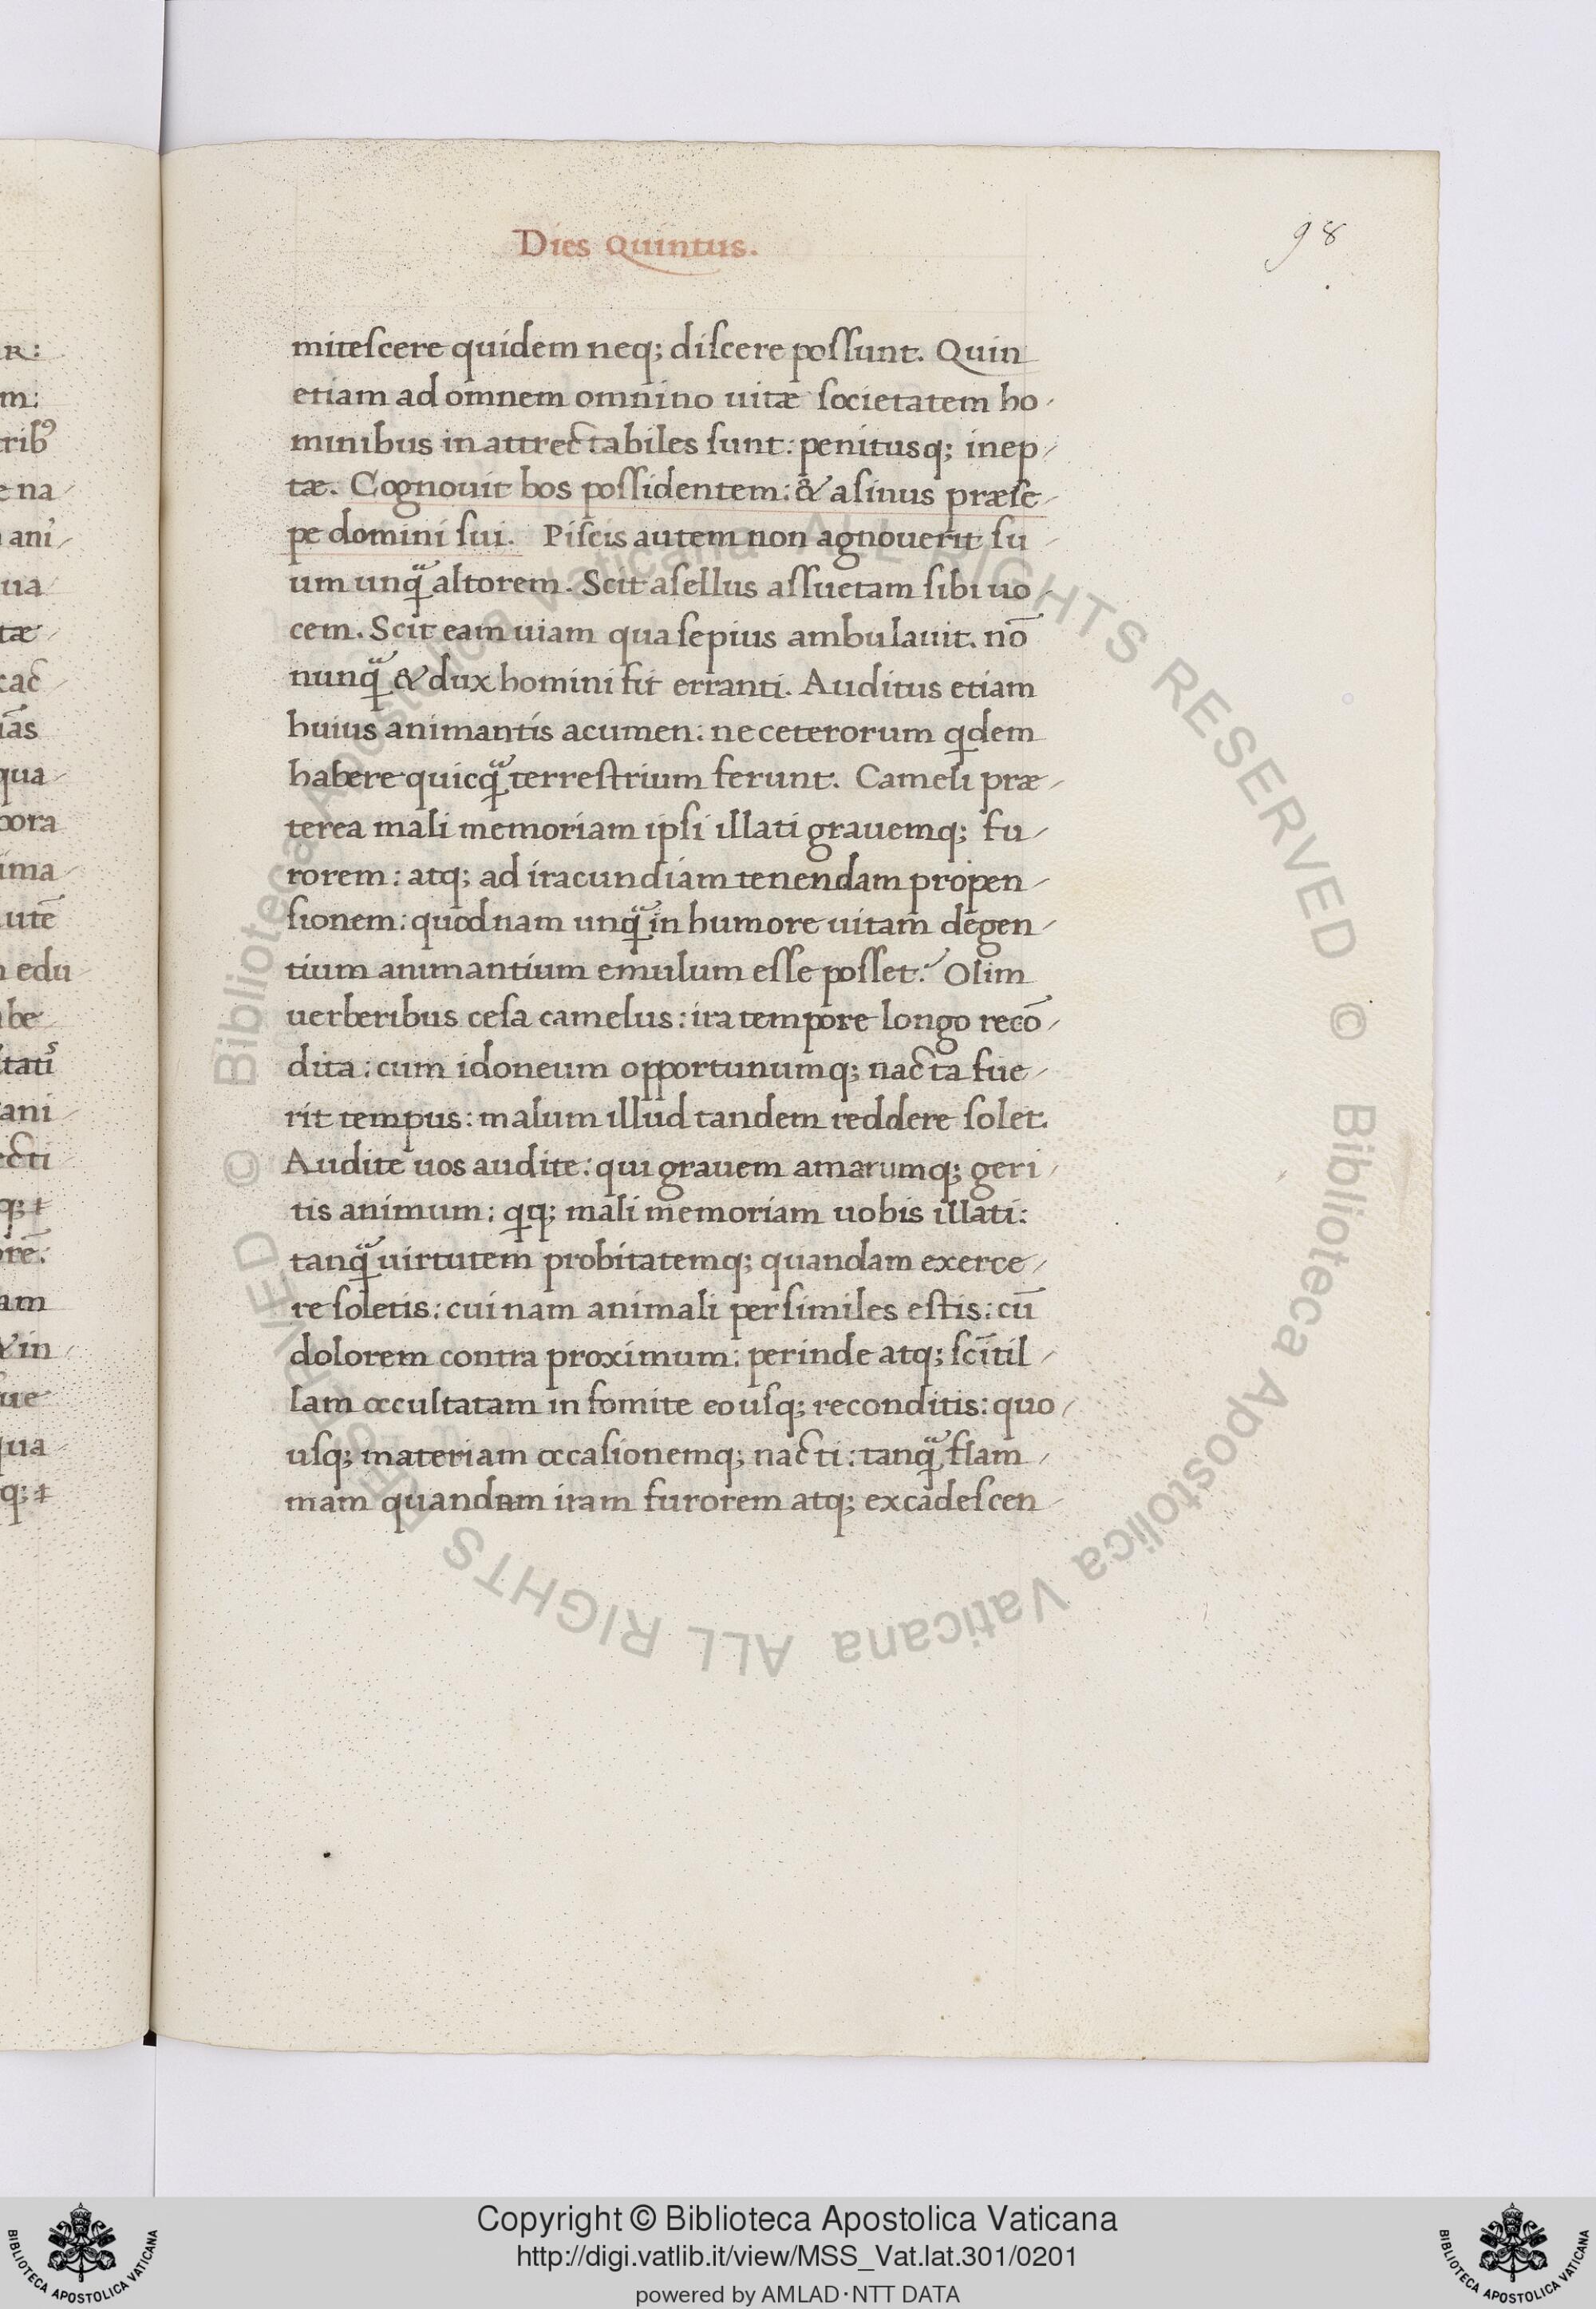 Dies Quintus.
98
mitescere quidem neq; discere possunt. Quin
etiam ad omnem omnino uitæ societatem ho-
minibus inattrectabiles sunt: penitusq; inep-
tæ. Cognouit bos possidentem: & asinus præse-
pe domini sui. Piscis autem non agnouerit su-
um unq̃ altorem. Scit asellus assuetam sibi uo-
cem. Scit eam uiam qua sepius ambulauit. nō
nunq̃ & dux homini fit erranti. Auditus etiam
huius animantis acumen: ne ceterorum qdem
habere quicq̃ terrestrium ferunt. Cameli præ-
terea mali memoriam ipsi illati grauemq; fu-
rorem: atq; ad iracundiam tenendam propen-
sionem: quodnam unq̃ in humore uitam degen-
tium animantium emulum esse posset? Olim
uerberibus cesa camelus: ira tempore longo recō-
dita: cum idoneum opportunumq; nacta fue-
rit tempus: malum illud tandem reddere solet.
Audite uos audite: qui grauem amarumq; geri-
tis animum: qq; mali memoriam uobis illati:
tanq̃ uirtutem probitatemq; quandam exerce-
re soletis: cui nam animali persimiles estis: cū
dolorem contra proximum: perinde atq; scītil-
lam occultatam in fomite eousq; reconditis: quo-
usq; materiam occasionemq; nacti: tanq̃ flam-
mam quandam iram furorem atq; excādescen-
R:
m:
trib9
e na-
ani-
ua
tæ-
cac-
ias
qua-
pora
ima-
utē
edu
be
tatis
ani-
ecti
q; &
orē:
am
& in-
ue
qua-
q; &
© Biblioteca Apostolica Vaticana ALL RIGHTS RESERVED © Biblioteca Apostolica Vaticana ALL RIGHTS RESERVED
Copyright © Biblioteca Apostolica Vaticana
http://digi.vatlib.it/view/MSS_Vat.lat.301/0201
powered by AMLAD·NTT DATA
BIBLIOTECA APOSTOLICA VATICANA
BIBLIOTECA APOSTOLICA VATICANA